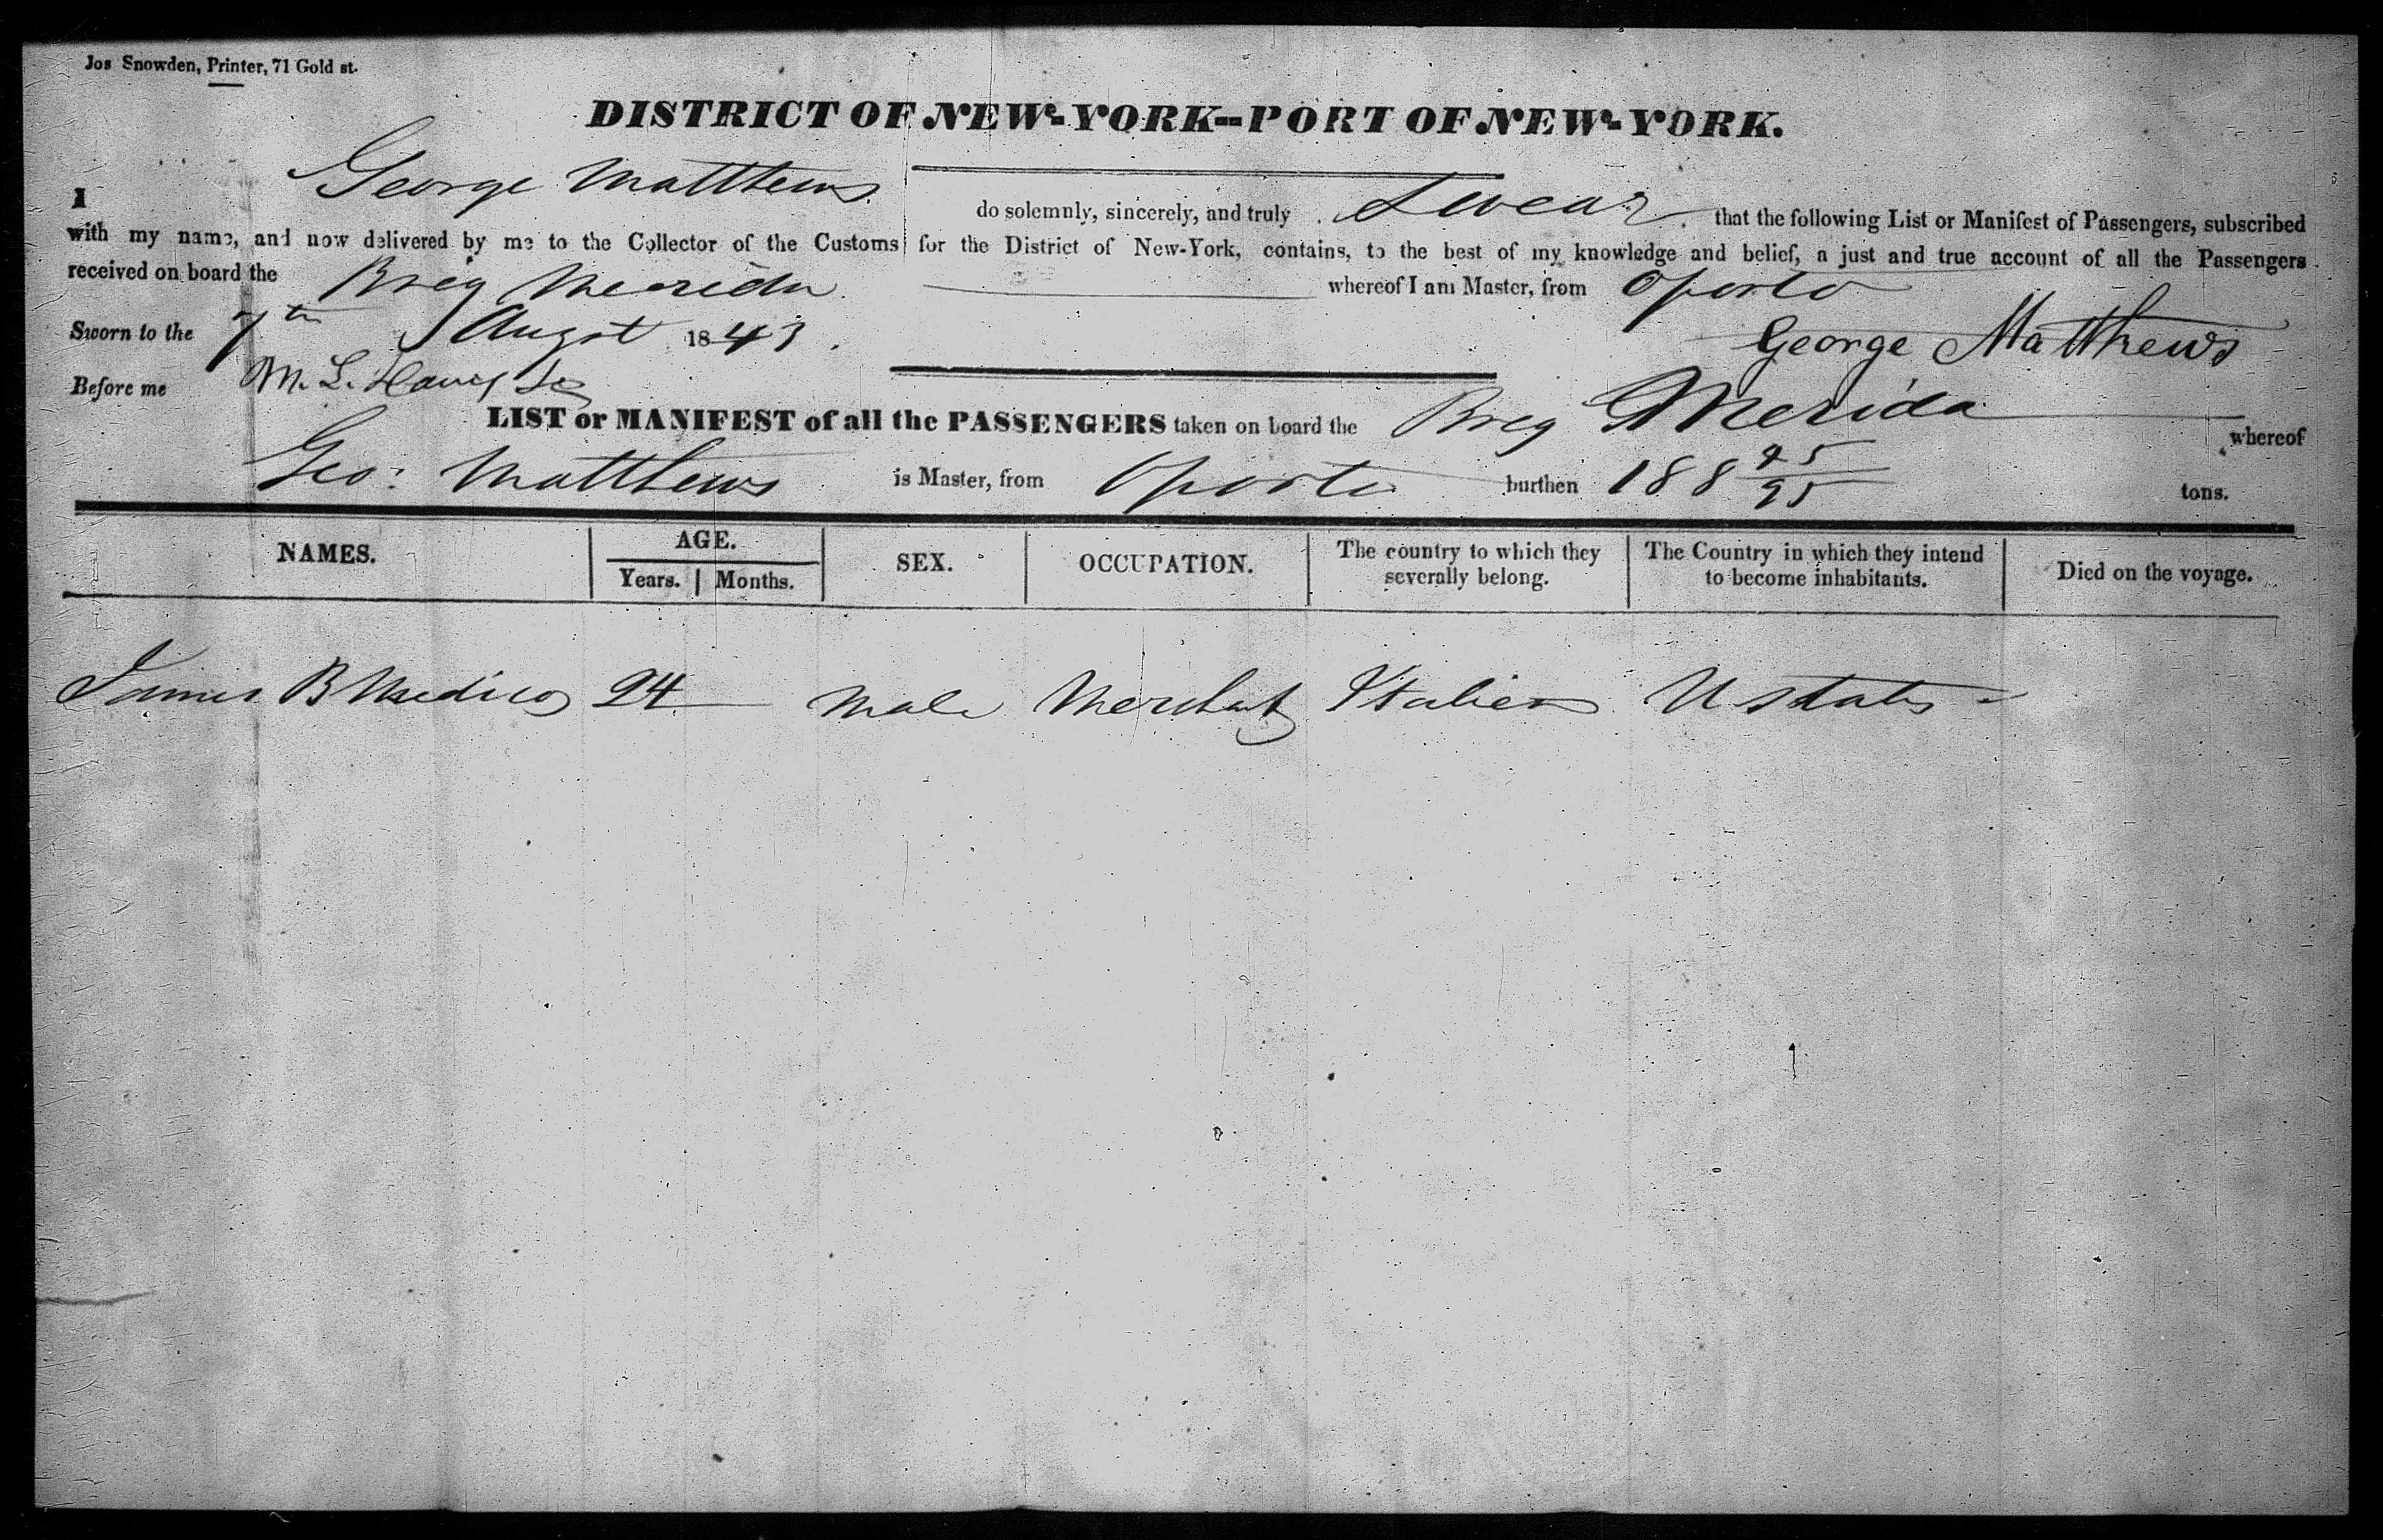 Jos Snowden, Printer, 71 Gold st.
DISTRICT OF NEW-YORK--PORT OF NEW-YORK.
I George Matthews do solemnly, sincerely, and truly Swear that the following List or Manifest of Passengers, subscribed
with my name, and now delivered by me to the Collector of the Customs for the District of New-York, contains, to the best of my knowledge and belief, a just and true account of all the Passengers
received on board the Breg Merida whereof I am Master, from Oporto
Sworn to the 7th Augst 1843.
George Matthews
Before me M. L.
LIST or MANIFEST of all the PASSENGERS taken on board the Breg Merida whereof
Geo: Matthews is Master, from Oporto burthen 188 45/95 tons.
NAMES. AGE. SEX. OCCUPATION. The country to which they severally belong. The Country in which they intend to become inhabitants. Died on the voyage.
Years. Months.
James B 24 male Merchat Italien U States